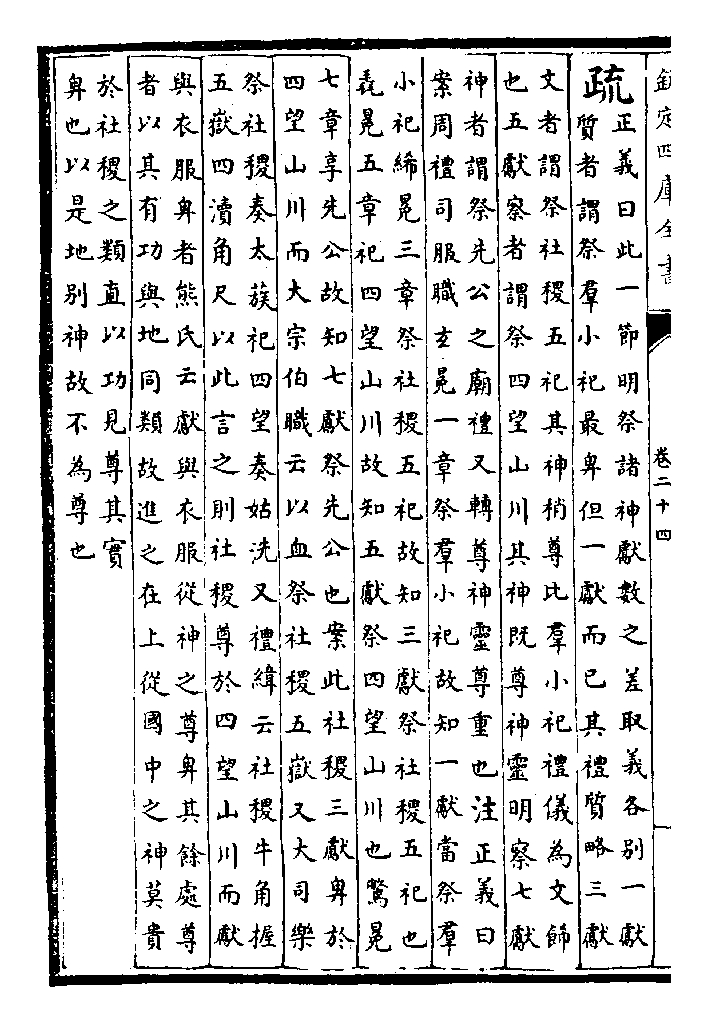 欽定四庫全書
卷二十四
疏
正義曰此一節明祭諸神獻數之差取義各别一獻
質者謂祭羣小祀最卑但一獻而已其禮質略三獻
文者謂祭社稷五祀其神稍尊比羣小祀禮儀為文飾
也五獻察者謂祭四望山川其神既尊神靈明察七獻
神者謂祭先公之廟禮又轉尊神靈尊重也注正義曰
案周禮司服職玄冕一章祭羣小祀故知一獻當祭羣
小祀絺冕三章祭社稷五祀故知三獻祭社稷五祀也
毳冕五章祀四望山川故知五獻祭四望山川也鷩冕
七章享先公故知七獻祭先公也案此社稷三獻卑於
四望山川而大宗伯職云以血祭社稷五嶽又大司樂
祭社稷奏太蔟祀四望奏姑洗又禮緯云社稷牛角握
五嶽四瀆角尺以此言之則社稷尊於四望山川而獻
與衣服卑者熊氏云獻與衣服從神之尊卑其餘處尊
者以其有功與地同類故進之在上從國中之神莫貴
於社稷之類直以功見尊其實
卑也以是地别神故不為尊也